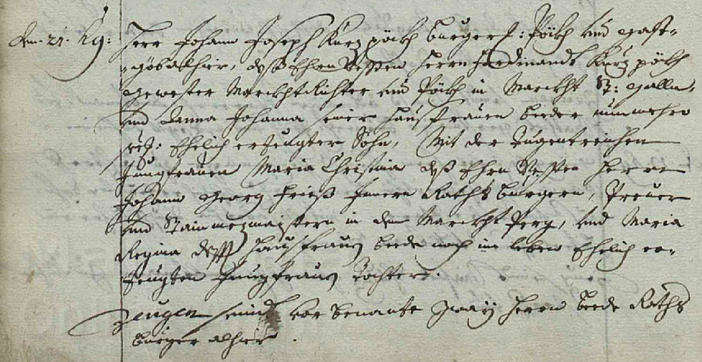 den 21. 
Herr Johann Joseph Kurzpöckh burgerl: Pöckh und Gast-
göb allhier, deß Ehrn Vesten Herrn Ferdinandt Kurzpöckh
gewester Marckhtrichter und Pöckh in Marckht St: Gallen,
und Anna Johanna seiner Haußfrauen beeder nunmehro
Ehelich erzeugter Sohn, Mit der Tugentreichen
Jungfrauen Maria Christina deß Ehrn Vesten Herrn
Johann Georg Frieß Innern Raths burgern,
und Stainmezmaistern in dem Marckht Perg, und Maria
Regina dessen Haußfrauen beede noch im leben Ehelich er-
zeugten Jungfrauen Tochter.
Zeugen seindt vor benante zway Herrn beede Raths
burger alhier.